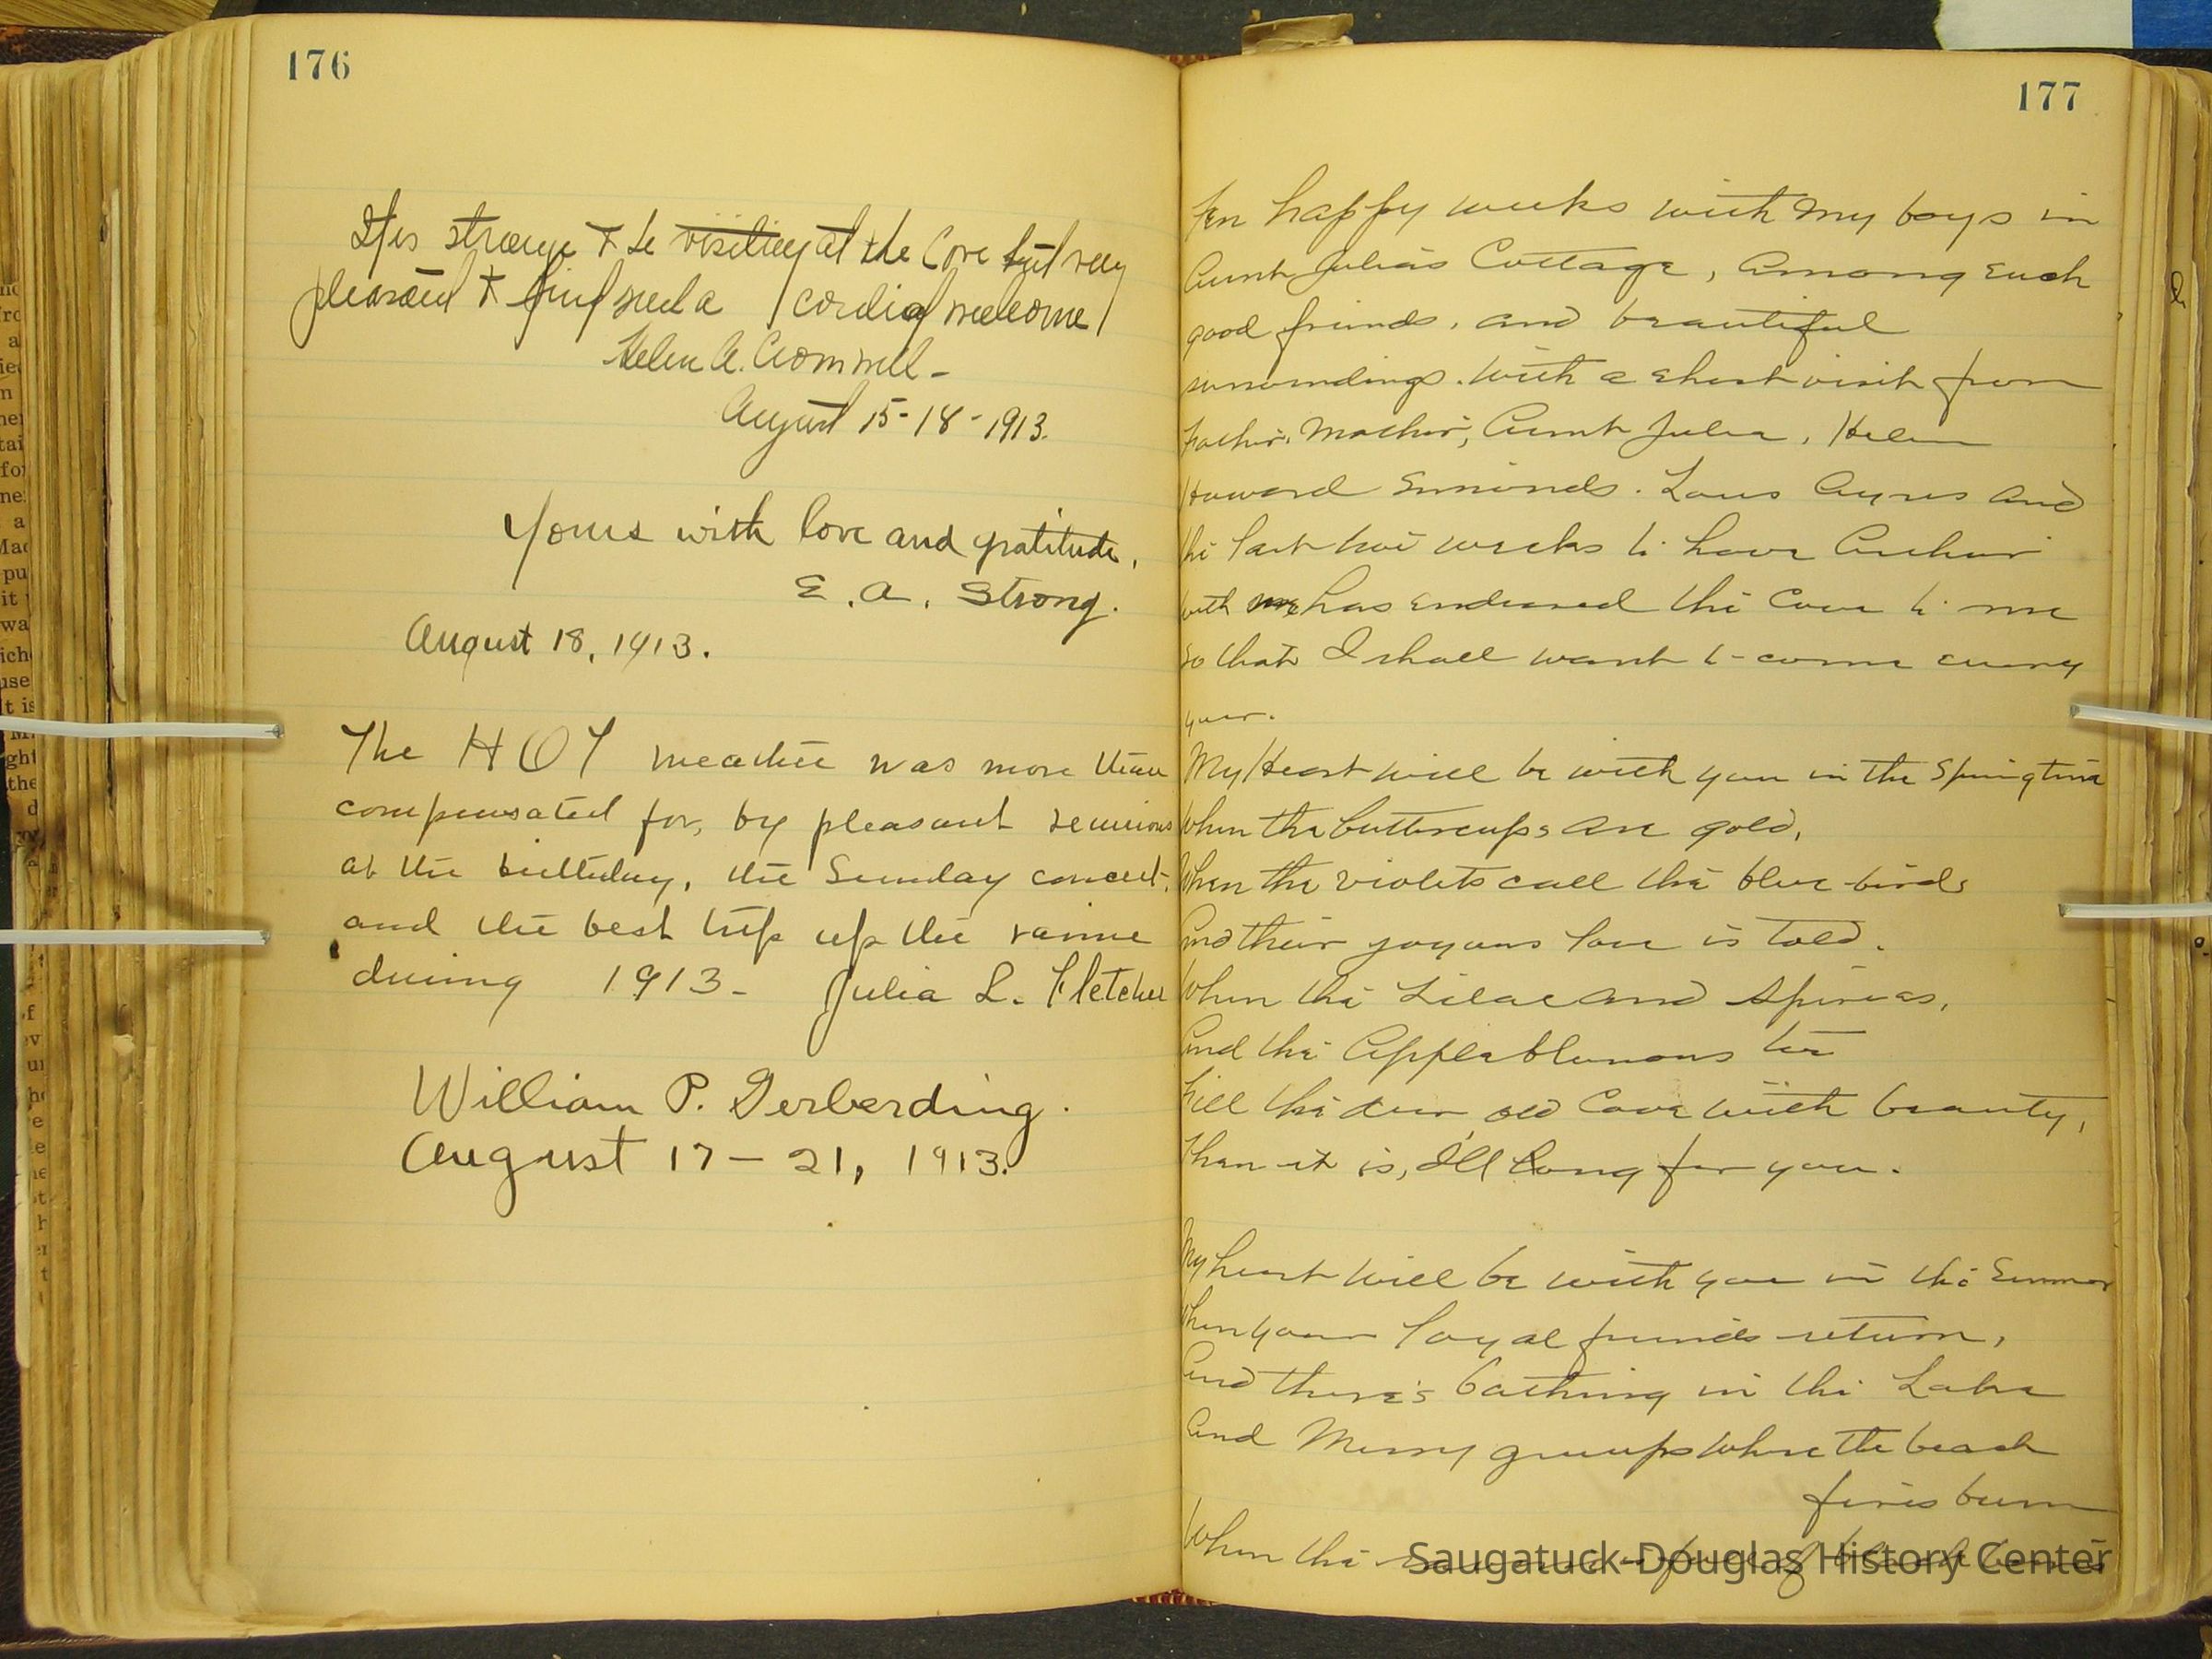 176
It is strange to be visiting at the Cove but very
pleasant to find such a cordial welcome
Helen A. Cromwell -
August 15-18-1913.
Yours with love and gratitude,
E. A. Strong.
August 18, 1913.
The HOT weather was more than
compensated for, by pleasant reunions
at the birthday, the Sunday concert,
and the best trip up the ravine
during 1913 - Julia L. Fletcher
William P. Gerberding.
August 17 - 21, 1913.
177
Ten happy weeks with my boys in
Aunt Julia's Cottage, among such
good friends, and beautiful
surroundings. With a short visit from
Father, Mother, Aunt Julia, Helen
Howard Simonds. Lous Ayres and
the last two weeks to have Arthur
with me has endeared the Cove to me
so that I shall want to come every
year.
My Heart will be with you in the Springtime
When the buttercups are gold,
When the violets call the blue birds
And their joyous love is told.
When the Lilac and Spireas,
And the Appleblossoms too
Fill the dear old Cove with beauty,
Then it is, I'll long for you.
My heart will be with you in the Summer
When your loyal friends return,
And there's bathing in the Lake
And Merry groups where the beach
fires burn
When the
Saugatuck-Douglas History Center